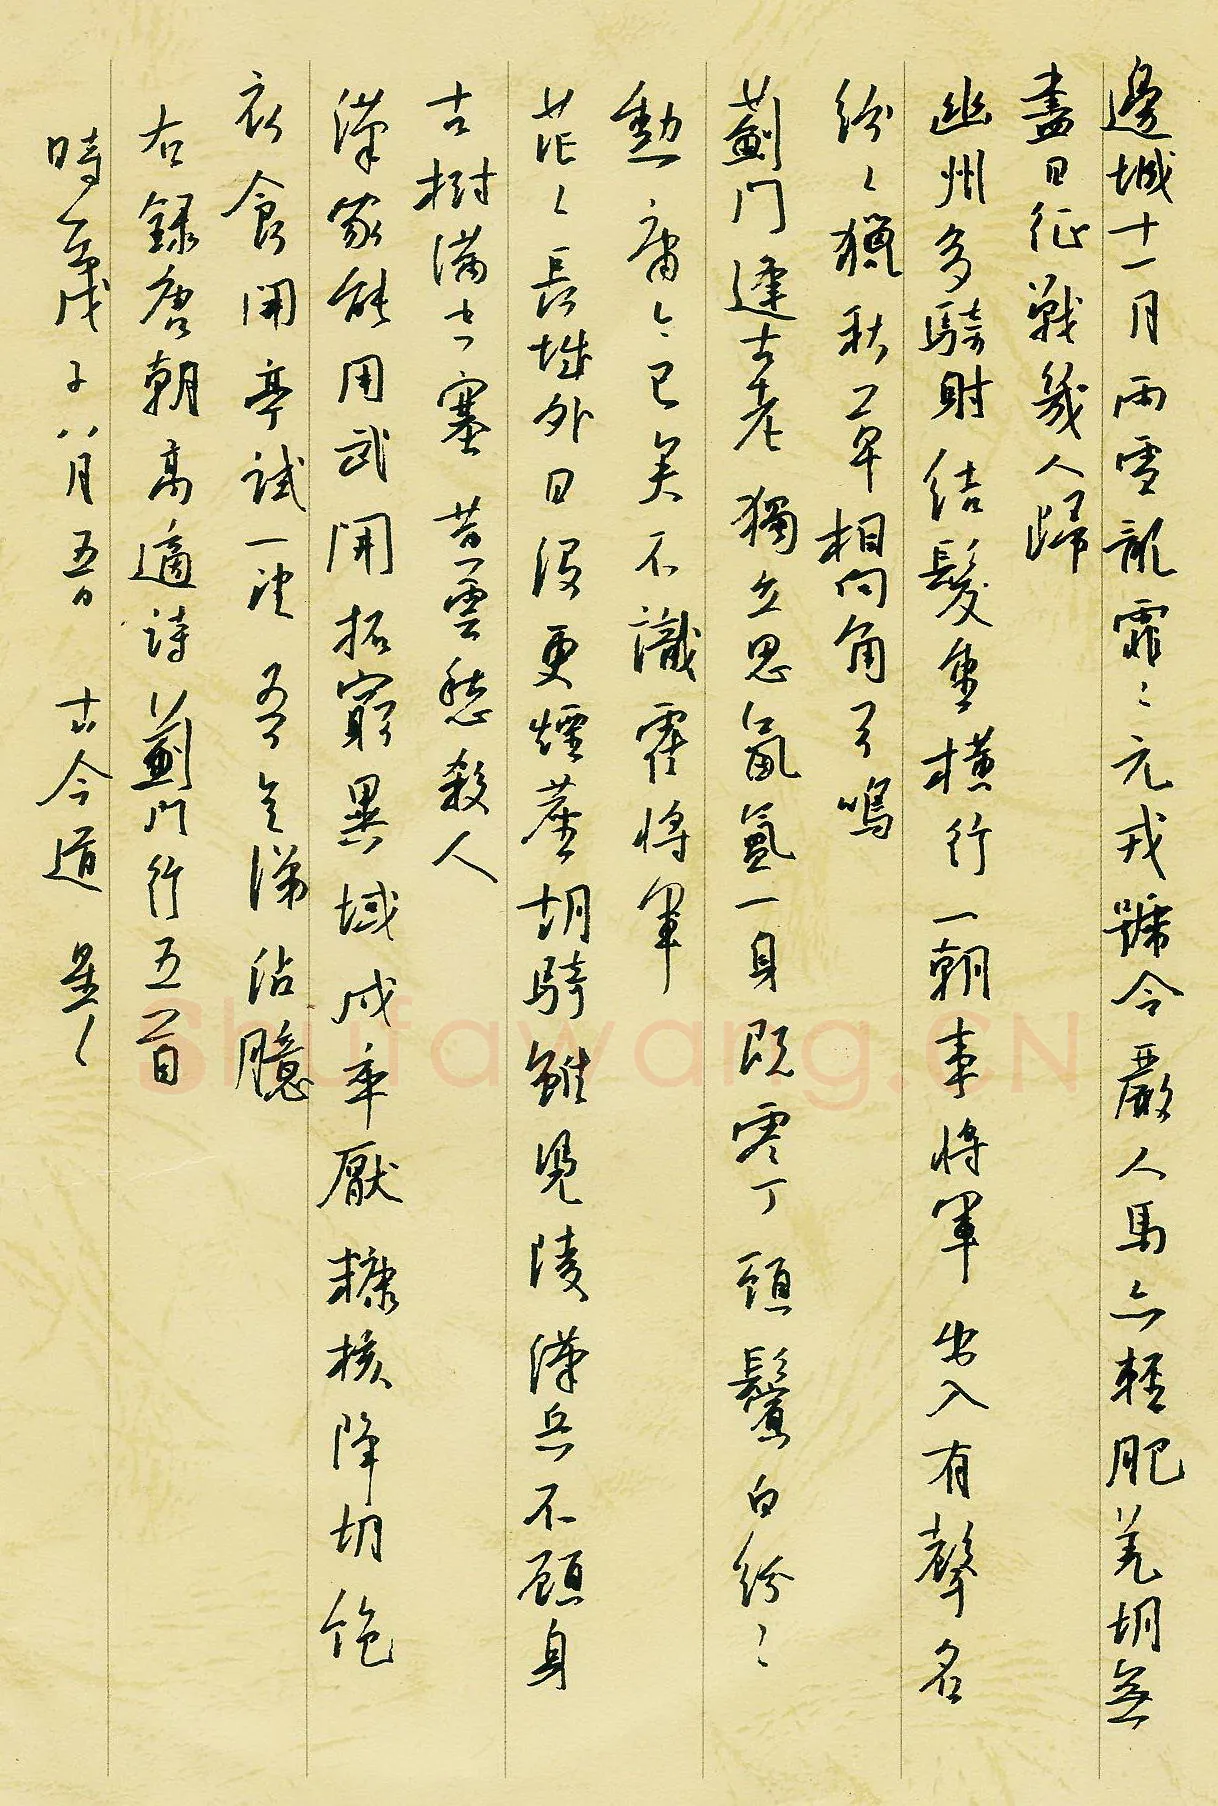 邊城十一月雨雪亂霏〻元戎號令嚴人馬亦輕肥羌胡無
盡日征戰幾人歸
幽州多騎射結髮重橫行一朝事將軍出入有聲名
紛〻獵秋草相向角弓鳴
薊門逢古老獨立思氛氳一身既零丁頭鬢白紛〻
勳庸今已矣不識霍將軍
茫〻長城外日沒更煙塵胡騎雖憑陵漢兵不顧身
古樹滿空塞黃雲愁殺人
漢家能用武開拓窮異域戍卒厭糠核降胡飽
衣食開亭試一望吾欲涕沾臆
右録唐朝高適詩薊門行五首
時戊子八月五日 古今道
Shufawang.CN